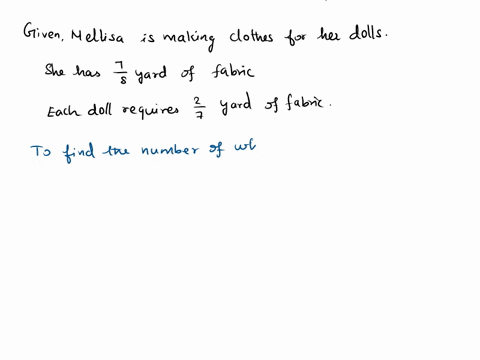 Given, Mellisa is making clothes for her dolls.
She has 7/8 yard of fabric
Each doll requires 2/7 yard of fabric.
To find the number of wh